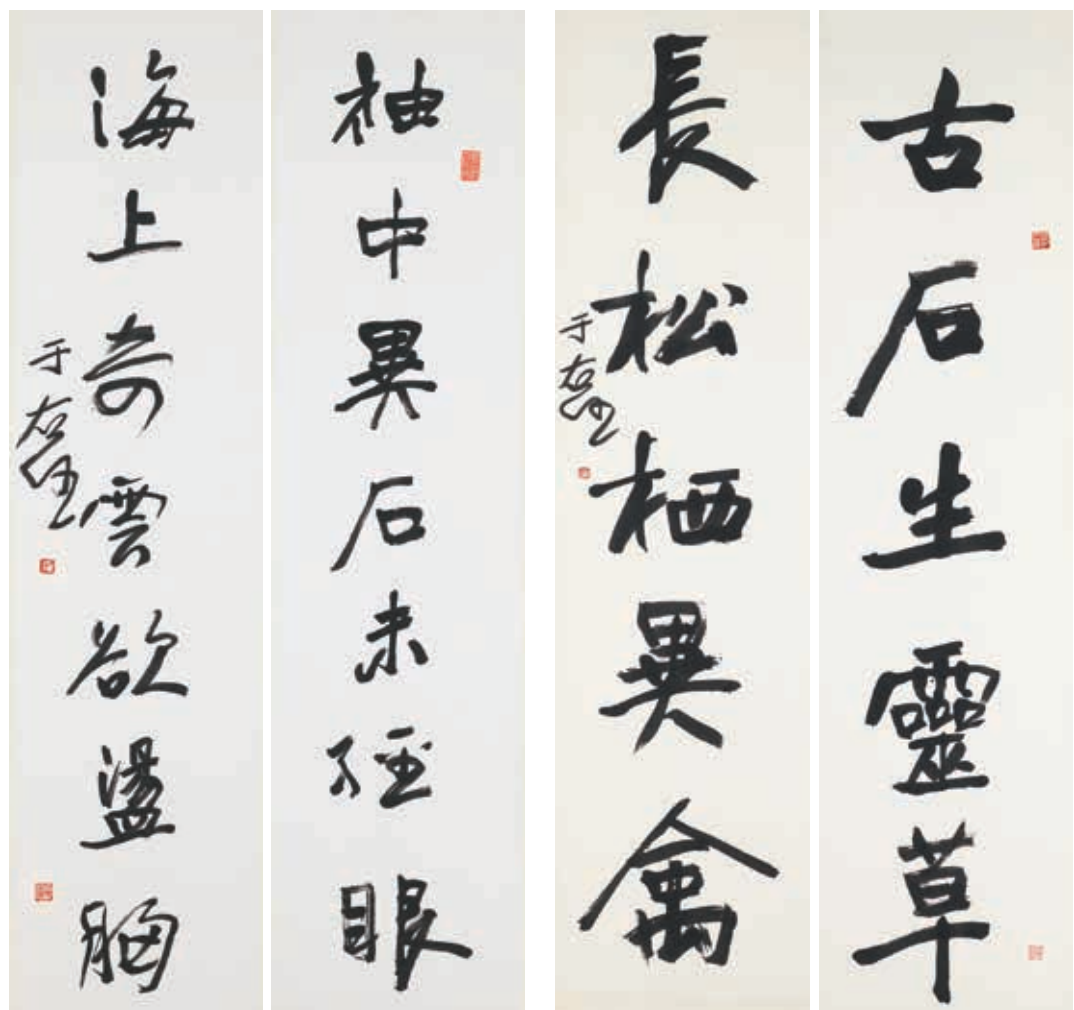 古石生靈草
長松栖異禽
于右任
袖中異石未經眼
海上奇雲欲盪胸
于右任